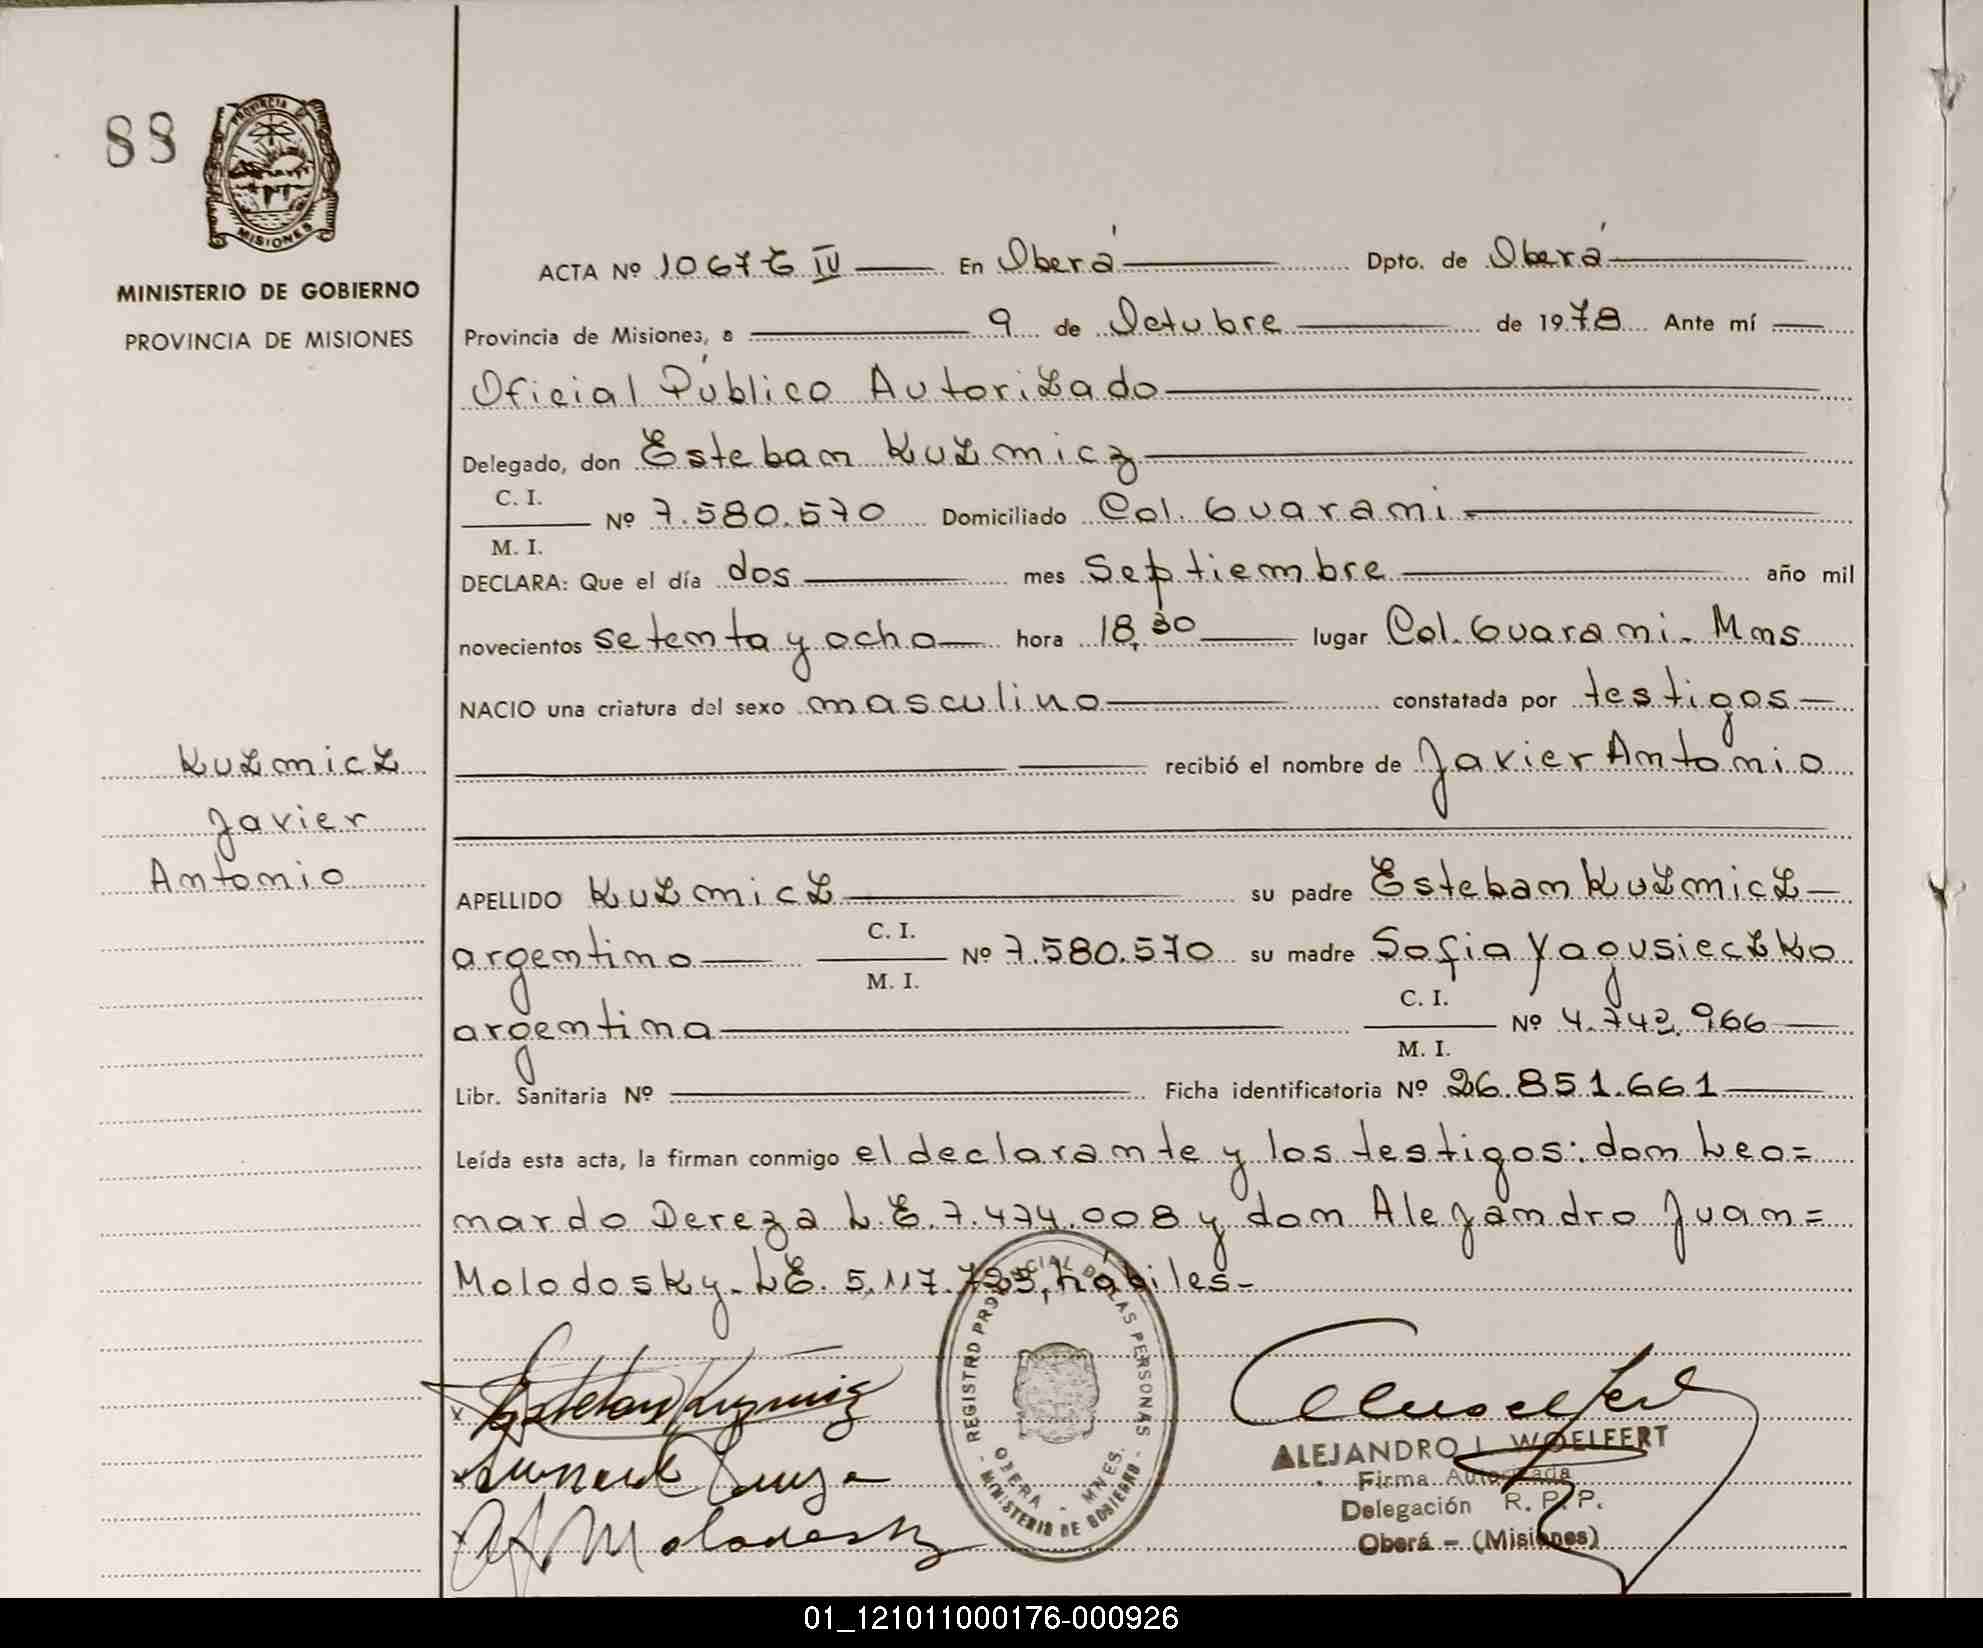 88
PROVINCIA DE
MISIONES
MINISTERIO DE GOBIERNO
PROVINCIA DE MISIONES
Kuzmicz
Javier
Antonio
ACTA Nº 1067 T IV En Oberá Dpto. de Oberá
Provincia de Misiones, a 9 de Octubre de 1978 Ante mí
Oficial Público Autorizado
Delegado, don Esteban Kuzmicz
C. I.
M. I. Nº 7.580.570 Domiciliado Col. Guarani
DECLARA: Que el día dos mes Septiembre año mil
novecientos setenta y ocho hora 18,30 lugar Col. Guarani. Mns
NACIO una criatura del sexo masculino constatada por testigos
recibió el nombre de Javier Antonio
APELLIDO Kuzmicz su padre Esteban Kuzmicz
argentino C. I. M. I. Nº 7.580.570 su madre Sofia Yagusieczko
argentina C. I. M. I. Nº 4.742.966
Libr. Sanitaria Nº Ficha identificatoria Nº 26.851.661
Leída esta acta, la firman conmigo el declarante y los testigos: don Leo=
nardo Dereza L.E. 7.474.008 y don Alejandro Juan=
Molodosky. LE. 5.117.725, hábiles-
REGISTRO PROVINCIAL DE LAS PERSONAS
OBERA - MNES.
MINISTERIO DE GOBIERNO
Esteban Kuzmicz
Molodosky
ALEJANDRO L. WOELFERT
Firma Autorizada
Delegación R. P. P.
Oberá - (Misiones)
01_121011000176-000926